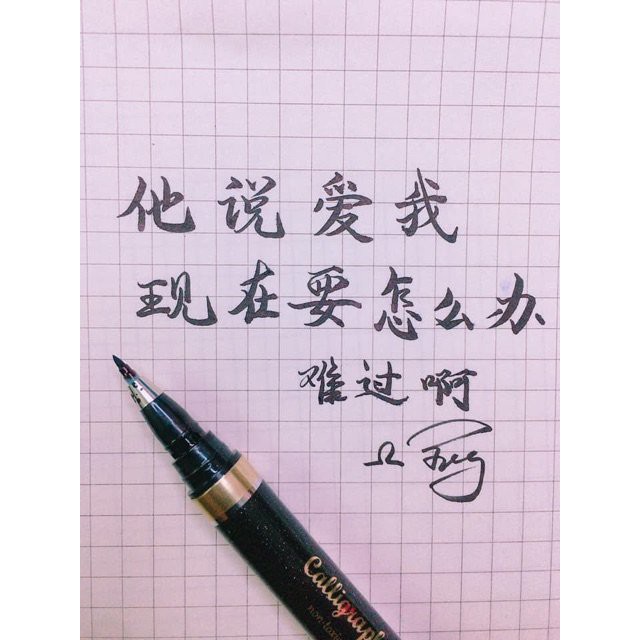 他说爱我
现在要怎么办
难过啊
Ω
Calligraph
non-tox